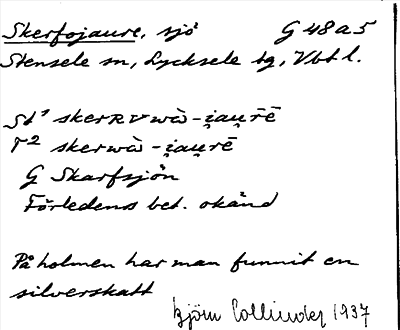 Skerfojaure, sjö G 48 a 5
Stensele sn, Lycksele tg, Vbt l.
St¹ skerʀᴠwà-i̯au̯rē
T² skerwà-i̯au̯rē
G Skarfsjön
Förledens bet. okänd
På holmen har man funnit en
silverskatt
Björn Collinder 1937